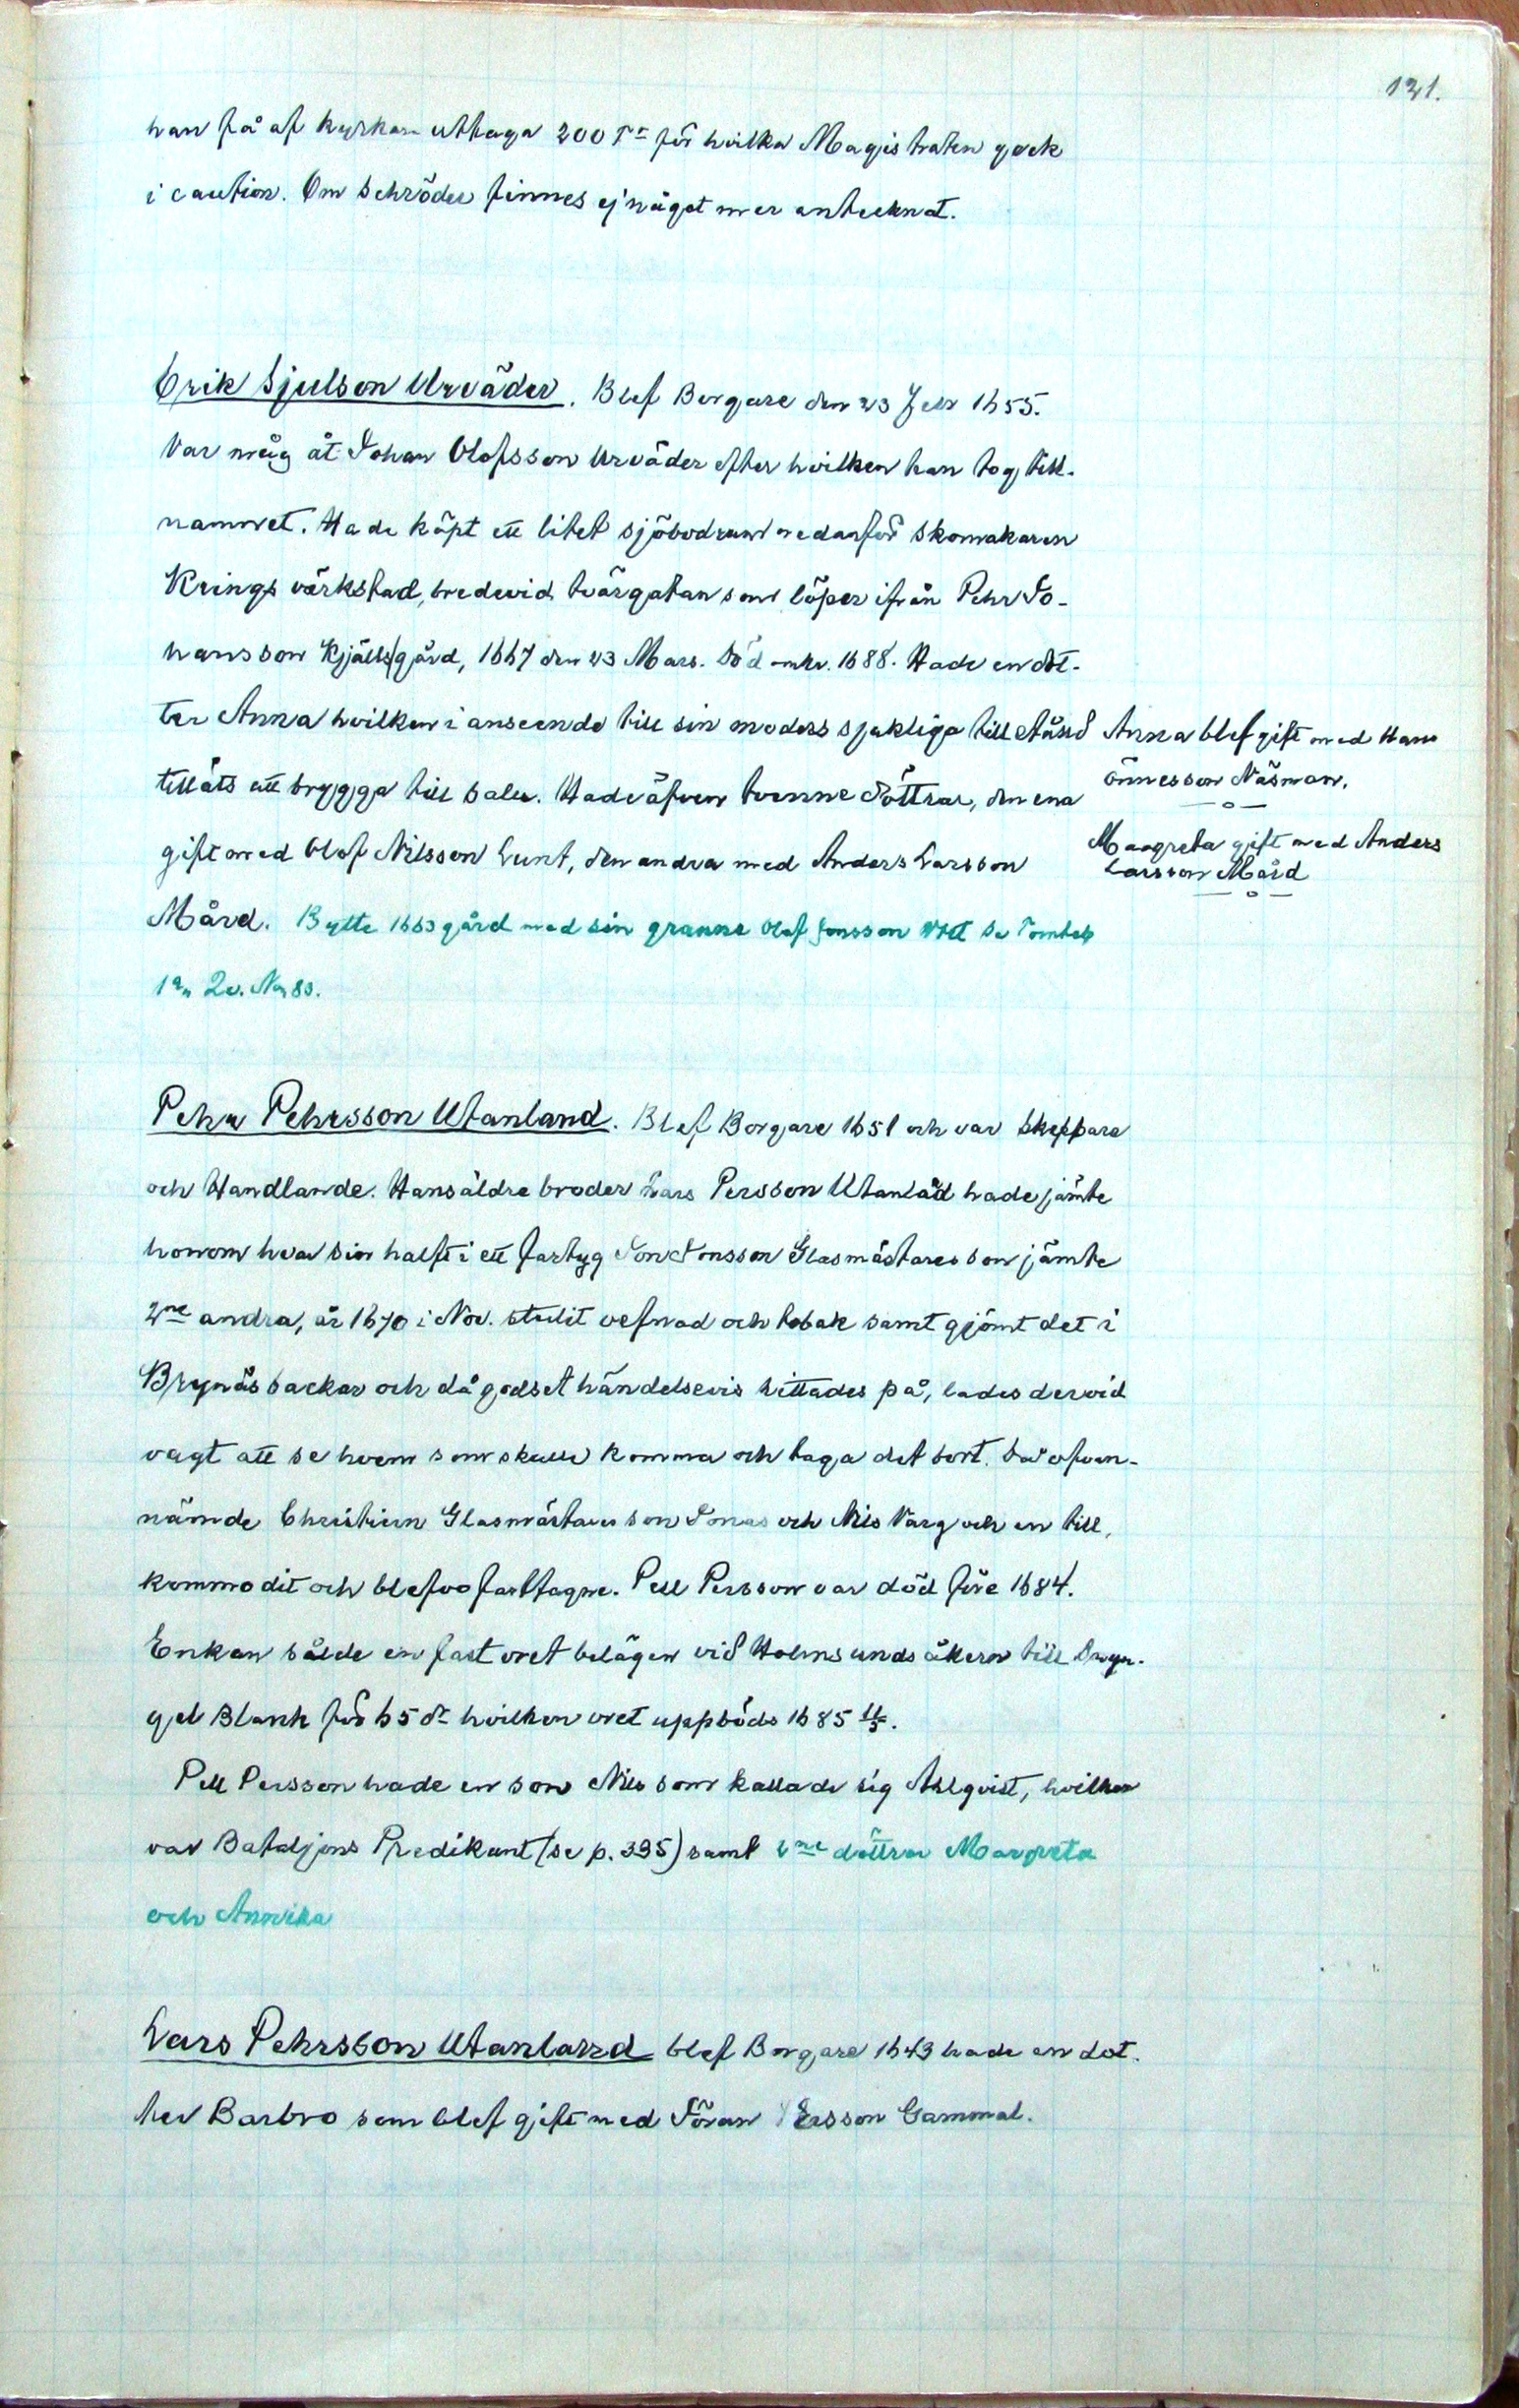 131.
han få af kyrkan uttaga 200 Dr för hvilka Magistraten geck
i caution. Om Schröder finnes ej något mer antecknat.
Erik Sjulson Urväder. Blef Borgare den 23 Febr 1655.
Var måg åt Johan Olofsson Urväder efter hvilken han tog till-
namnet. Hade köpt ett litet sjöbodrum nedanför skomakaren
Krings värkstad, bredevid tvärgatan som löper ifrån Pehr Jo-
hansson Kjälls gård, 1667 den 23 Mars. Död omkr. 1688. Hade en dot-
ter Anna hvilken i anseende till sin moders sjukliga tillstånd
tilläts att brygga till salu. Hade äfven tvenne döttrar, den ena
gift med Olof Nilsson Lunt, den andra med Anders Larsson
Mård. Bytte 1663 gård med sin granne Olof Jonsson Se Tomteb
1a 2v. No 83.
Anna blef gift med Hans
Önnesson Näsman.
—o—
Margreta gift med Anders
Larsson Mård
—o—
Pehr Pehrsson Utanland. Blef Borgare 1651 och var skeppare
och Handlande. Hans äldre broder Lars Persson Utanland hade jämte
honom hvar sin halft i ett fartyg Jon Jonsson Glasmästares son jämte
2ne andra, år 1670 i Nov. stulit vefnad och tobak samt gjömt det i
Brynäs backar och då godset händelsevis hittades på, lades dervid
vagt att se hvem som skulle komma och taga det bort. Då ofvan-
nämde Christiern Glasmästares son Jonas och Nils Varg och en till,
kommo dit och blefvo fasttagne. Pell Persson var död före 1684.
Enkan sålde en fast vret belägen vid Holmsunds åkern till
gel Blank för 65 dr hvilken vret uppböds 1685 11/5.
Pell Persson hade en son Nils som kallade sig Ahlqvist, hvilken
var Bataljons Predikant (se p. 395) samt 2ne döttrar Margreta
och Annika
Lars Pehrsson Utanland blef Borgare 1643 hade en dot-
ter Barbro som blef gift med Jöran Ersson Gammal.